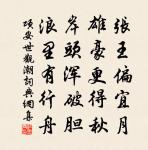 張王偏宜月
雄豪更得秋
岸頭渾破胆
浪里有行舟
項安世觀潮詞典網集